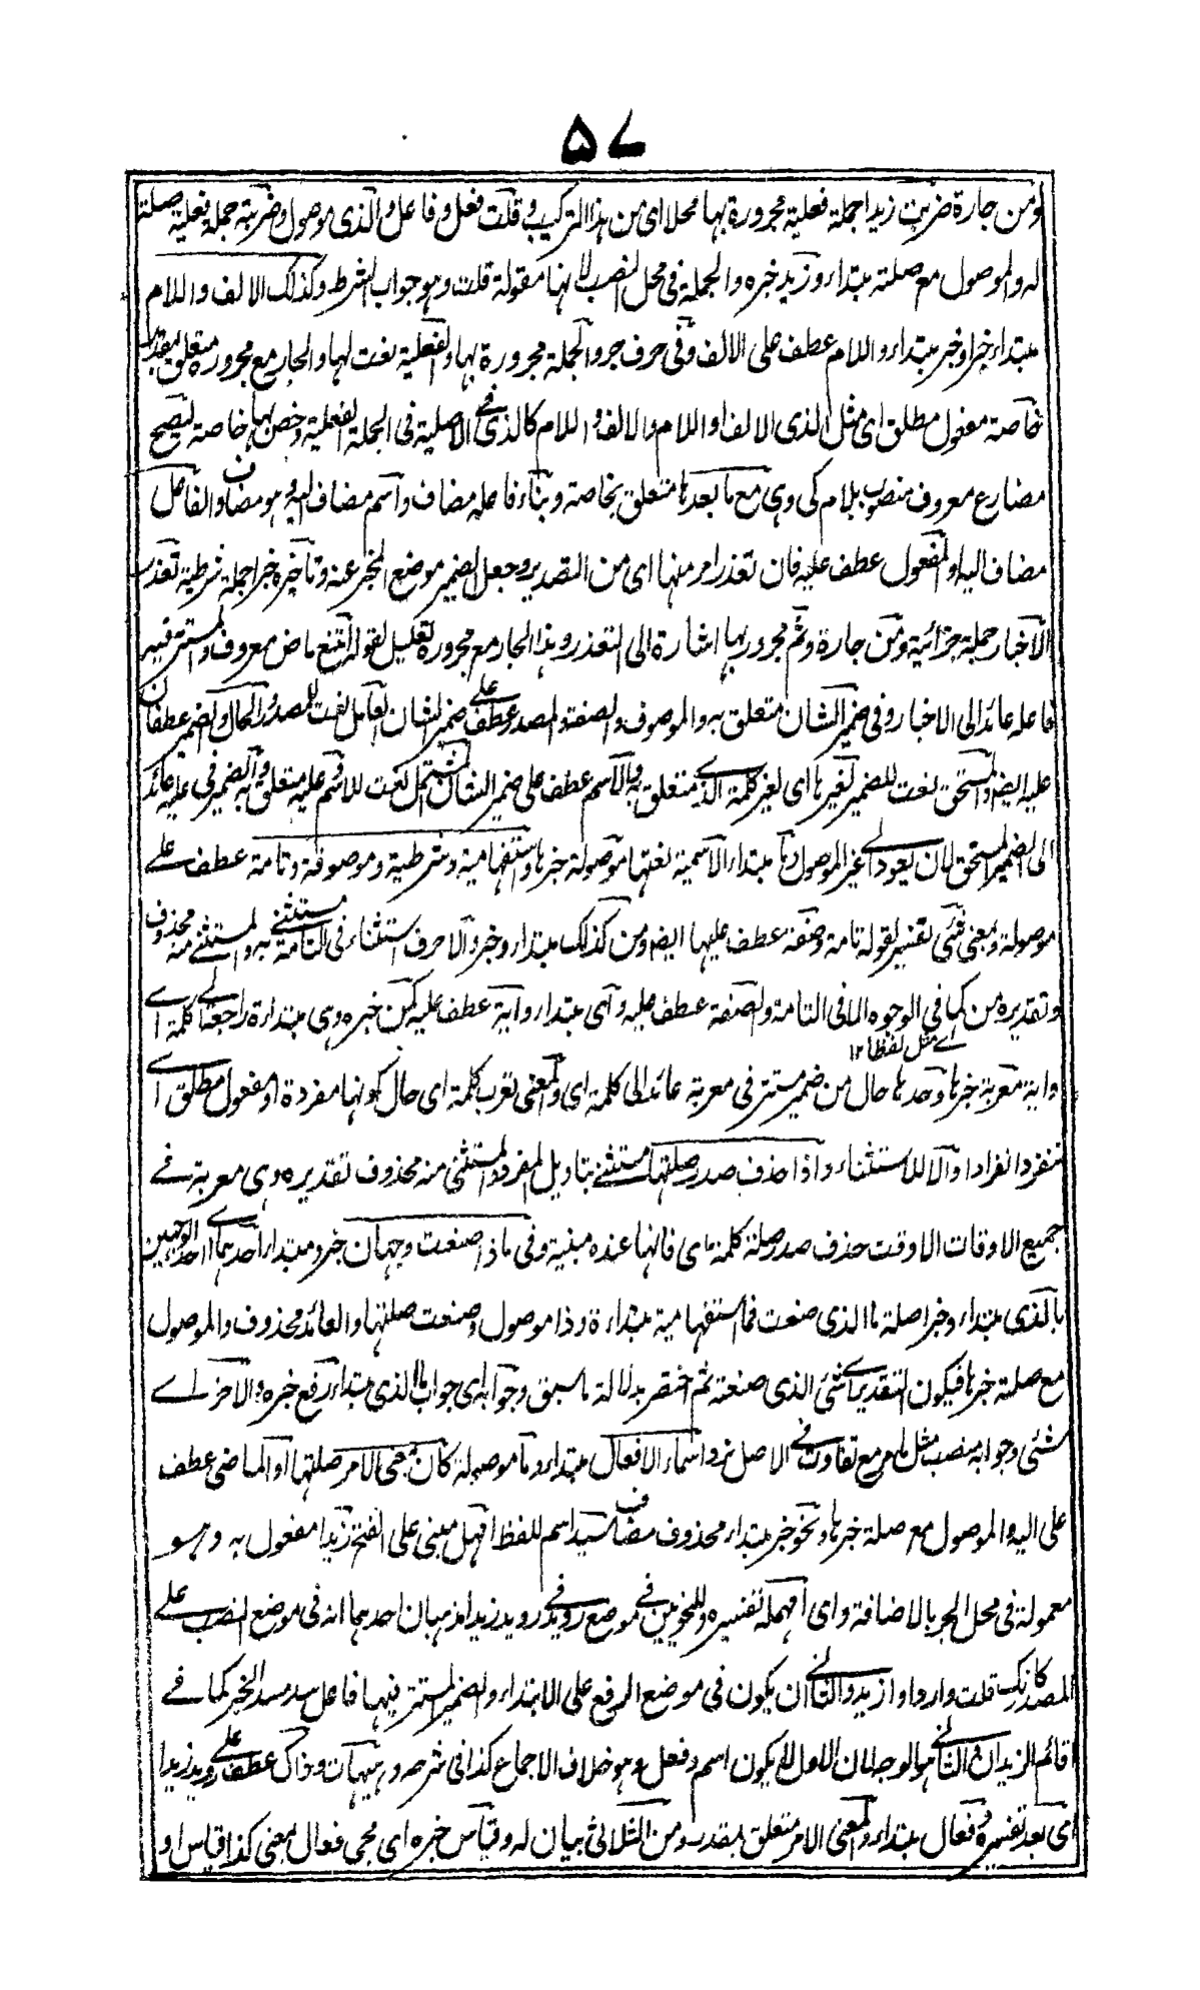 ۵۷
ومن جارة ضربت زيدا جملة فعلية مجرورة بها محلا اى من هذا التركيب وقلت فعل وفاعل والذى موصول وضربته جملة فعلية صلته
له والموصول مع صلته مبتداء وزيد خبره والجملة فى محل النصب لانها مقولة قلت وهو جواب الشرط وكذلك الالف واللام
مبتداء خبر او خبر مبتداء واللام عطف على الالف وفى حرف جر والجملة مجرورة بها والفعلية نعت لها والجار مع مجروره متعلق بمقدر
خاصة مفعول مطلق اى مثل الذى الالف واللام والالف واللام كالذى فى الاصلية فى الجملة الفعلية وخص بها خاصة ليصح
مضارع معروف منصوب بلام كى وهى مع ما بعدها متعلق بخاصة وبناء فاعله مضاف واسم مضاف اليه وهو مضاف والفاعل
مضاف اليه والمفعول عطف عليه فان تعذر امر منها اى من التصدير وجعل الضمير موضع المخبر عنه وتاخيره خبرا جملة شرطية تعذر
الاخبار جملة جزائية ومن جارة وثم مجرور بها اشارة الى التعذر وهذا الجار مع مجروره تعليل لقوله امتنع ماض معروف والمستتر فيه
فاعله عائد الى الاخبار وفى ضمير الشان متعلق به والموصوف والصفة والمصدر عطف على ضمير الشان العامل نعت للمصدر والحال والضمير عطفان
عليه ايضا والمستحق نعت للضمير لغيرها اى لغير كلمة الذى متعلق به والاسم عطف على ضمير الشان المشتمل نعت للاسم وعليه متعلق به والضمير فى عليه عائد
الى الضمير المستحق لان يعود الى غير الموصول وما مبتداء الاسمية نعتها موصولة خبرها واستفهامية وشرطية وموصوفة وتامة عطف على
موصولة وبمعنى شئى تفسير لقوله تامة وصفة عطف عليها ايضا ومن كذلك مبتداء وخبر والا حرف استثناء فى التامة مستثنى به والمستثنى منه محذوف
وتقديره من كما فى الوجوه الا فى التامة والصفة عطف عليه واى مبتداء واية عطف عليه كمن خبره وهى مبتداءة راجعة الى كلمة اى
اے مثل لفظا ۱۲
واية معربة خبرها وحدها حال من ضمير مستتر فى معربة عائد الى كلمة اى والمعنى تعرب كلمة اى حال كونها مفردة او مفعول مطلق اى
تنفرد انفرادا والا للاستثناء واذا حذف صدر صلتها مستثنى بتاويل المفرد والمستثنى منه محذوف تقديره وهى معربة فى
جميع الاوقات الا وقت حذف صدر صلة كلمة اى فانها عنده مبنية وفى ماذا صنعت وجهان خبر ومبتداء احدهما اى احد الوجهين
ما الذى مبتداء وخبر اصله ما الذى صنعت فما استفهامية مبتداءة وذا موصول وصنعت صلتها والعائد محذوف والموصول
مع صلته خبرها فيكون التقدير اى شئى الذى صنعته ثم اختصر بدلالة ما سبق وجوابه اى جواب ما الذى مبتداء رفع خبره والاخر اى
شئى وجوابه نصب مثل ما مر مع تفاوت فى الاصل نزد اسماء الافعال مبتداء وما موصولة كان بمعنى الامر صلتها او الماضى عطف
على اليه والموصول مع صلته خبرها ونحو خبر مبتداء محذوف مضاف رويد اسم للفظ امهل مبنى على الفتح زيدا مفعول به وهو
معمولة فى محل الجر بالاضافة واى امهله تفسيره وللنحويين فى موضع رويد فى رويد زيدا مذهبان احدهما انه فى موضع النصب على
المصدر كانك قلت واروادا زيد والثانى ان يكون فى موضع الرفع على الابتداء والضمير المستتر فيها فاعل سد مسد الخبر كما فى
قائم الزيدان والثانى هو الوجه لان الاول لا يكون اسم وفعل وهو خلاف الاجماع كذا فى شرحه وهيهات وذاك عطف على رويد زيدا
اى بعد تفسيره وفعال مبتداء وبمعنى الامر متعلق بمقدر ومن الثلاثى بيان له وقياس خبره اى مجى فعال بمعنى كذا قياس او